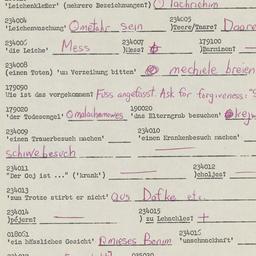 'Leichenkleßer' (mehrere Bezeichnungen?) ① Tachrichim
234004 234005
'Leichenwaschung' ① metahr sein )Teere/Taare? Daare
234006 234007 179100
'die Leiche' Mess )Mess? )Barminen?
234008
(einen Toten) 'um Verzeihung bitten' mechiele breien
179090
Wie ist das vorgekommen? Füss angefasst. Ask for forgiveness:
179020 190020
'der Todesengel' ① malachamowes 'das Elterngrab besuchen'
234009 234010
'einen Trauerbesuch machen' 'einen Krankenbesuch machen'
schiwebesuch
234011 234012
"Der Goj ist ..." ('krank') )choljes?
234013
'zum Trotze stirbt er nicht' aus Dafke etc.
234014 234015
)pejern? zu Lehachles? +
018061 234016
'ein hässliches Gesicht' ① mieses Benim 'unschmackhaft'